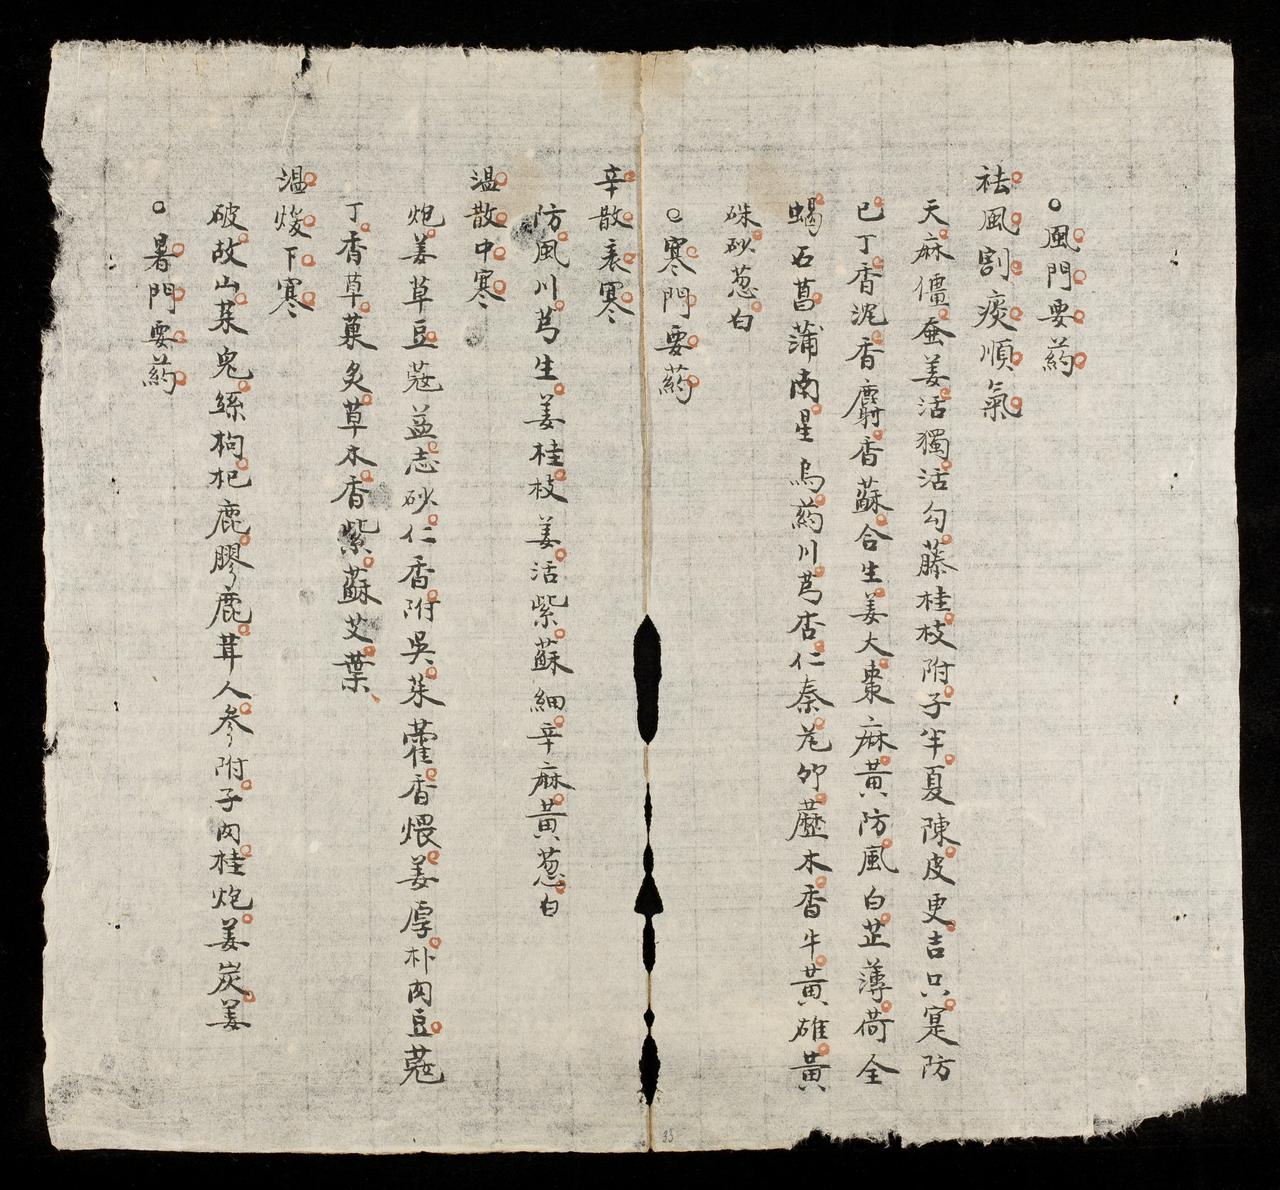 ○風門要葯
祛風割痰順氣
天麻僵蚕羌活獨活勾藤桂枝附子半夏陳皮更吉只寔防
已丁香泥香麝香蘇合生姜大棗麻黃防風白芷薄荷全
蝎石菖蒲南星烏葯川芎杏仁秦芃卯藶木香牛黃雄黃
硃砂葱白
○寒門要葯
辛散表寒
防風川芎生姜桂枝姜活紫蘇細辛麻黃葱白
温散中寒
炮姜草豆蔻益志砂仁香附吳茱藿香煨姜厚朴肉豆蔻
丁香草菓炙草木香紫蘇艾葉
温焌下寒
破故山茱兔絲枸杞鹿膠鹿茸人參附子肉桂炮姜炭姜
○暑門要葯
33